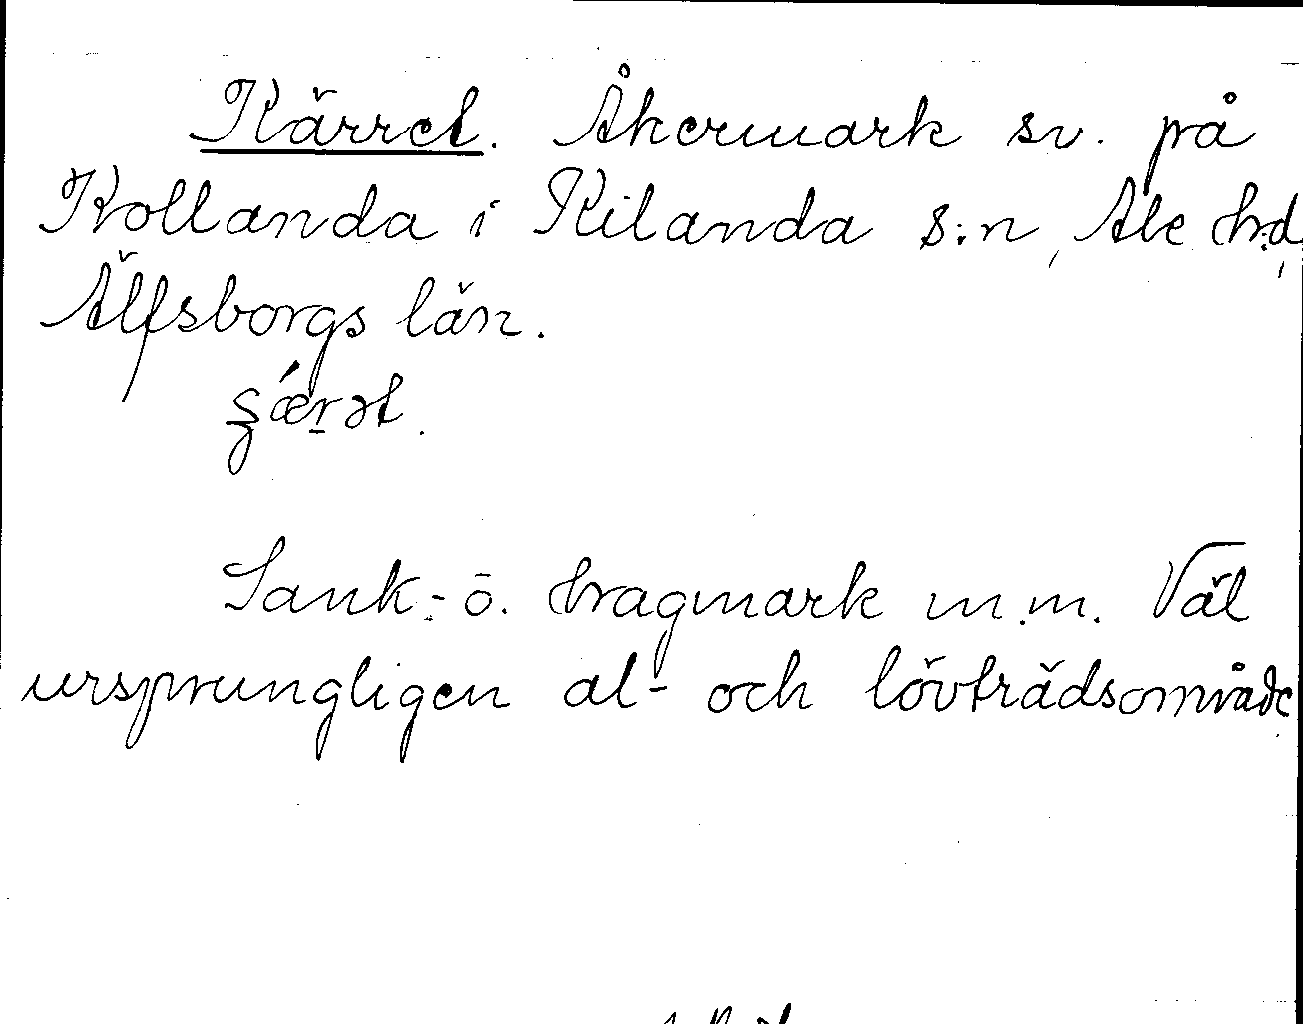 Kärret. Åkermark sv. på
Kollanda i Kilanda s:n, Ale h:d,
Älfsborgs län.
Sank- o. hragmark m.m. Väl
ursprungligen al- och lövträdsområde.